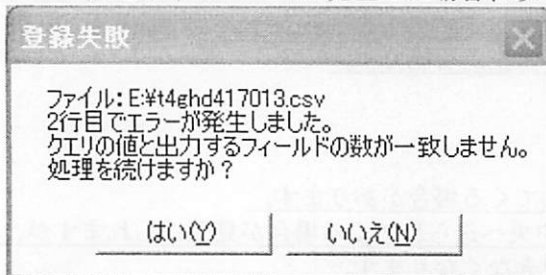 登録失敗
ファイル：E:¥t4ghd417013.csv
2行目でエラーが発生しました。
クエリの値と出力するフィールドの数が一致しません。
処理を続けますか？
はい(Y)
いいえ(N)